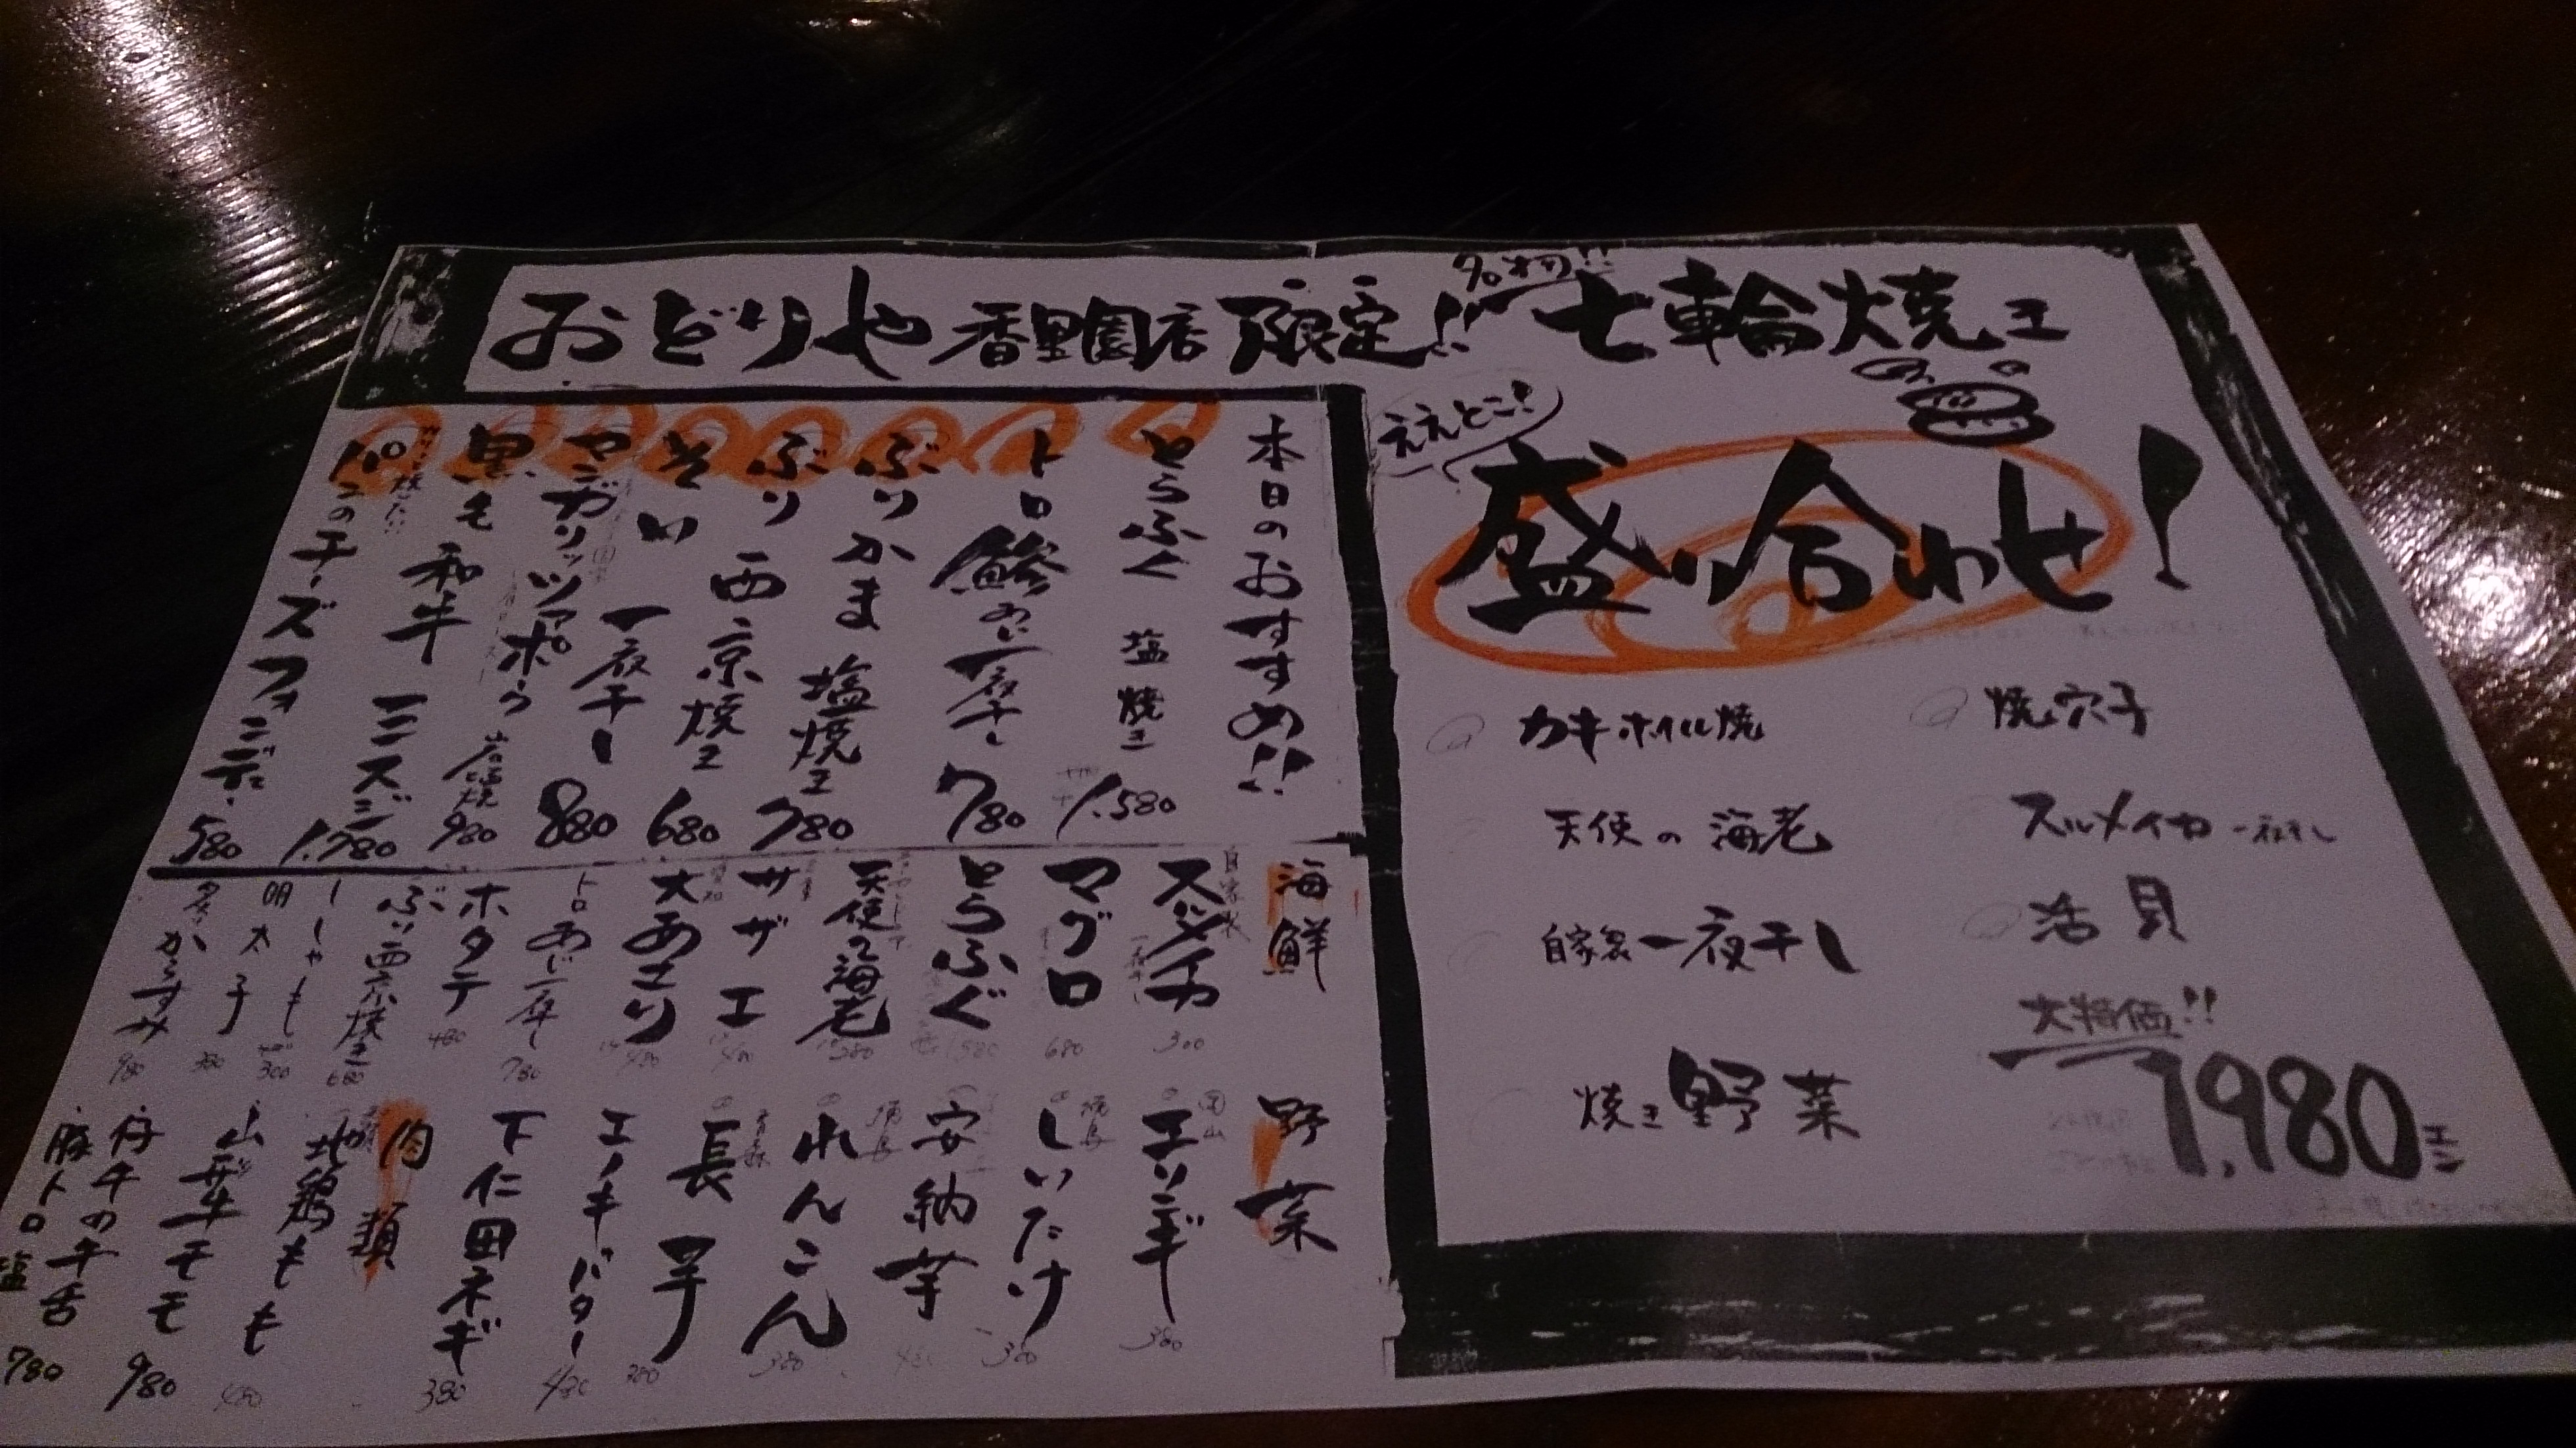 おどりや香里園店限定!!
七輪焼き
ええとこ!
盛り合わせ!
カキホイル焼
焼穴子
天使の海老
スルメイカ一夜干し
自家製一夜干し
活貝
焼き野菜
大特価!!
1,980エン
本日のおすすめ!!
とらふぐ 塩焼き 1,580
トロ鯵の一夜干し 780
ぶりかま 塩焼き 780
ぶり 西京焼き 680
そい 一夜干し 880
ヤンガリッツァポーク 岩塩焼 980
黒毛和牛 ミスジ 1,780
パンのチーズフォンデュ 580
海鮮
自家製
スルメイカ 300
マグロ 680
とらふぐ 1,580
天使の海老 580
サザエ
大あさり
トロあじ一夜干し 780
ホタテ 480
ぶり西京焼き 680
ししゃも 300
明太子
からすみ 980
野菜
エリンギ 380
しいたけ
安納芋
れんこん 380
長芋
エノキバター
下仁田ネギ 380
肉類
地鶏もも
モモ
丹牛の牛舌 980
豚トロ塩 780